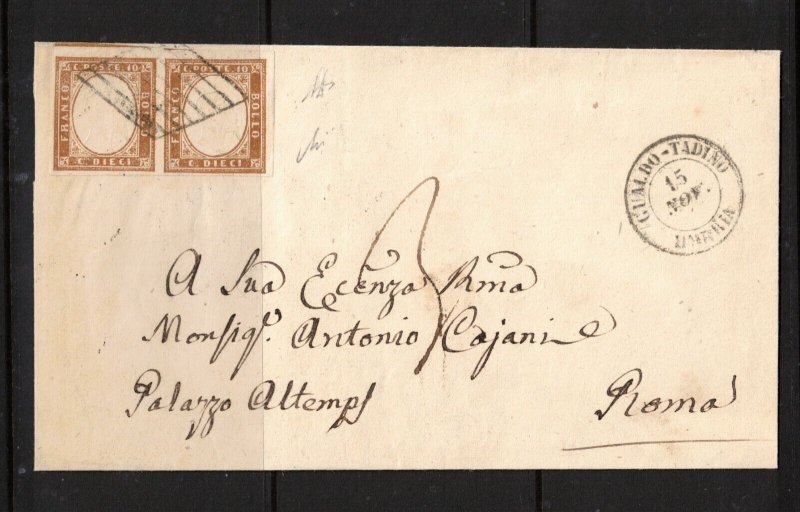 C. POSTE. 10 C. POSTE. 10
FRANCO BOLLO FRANCO BOLLO
Cⁱ DIECI C. DIECI
GUALDO-TADINO
15
NOV.
UMBRIA
3
A Sua Eccenza Rma
Monsigr. Antonio Cajani
Palazzo Altemps
Roma